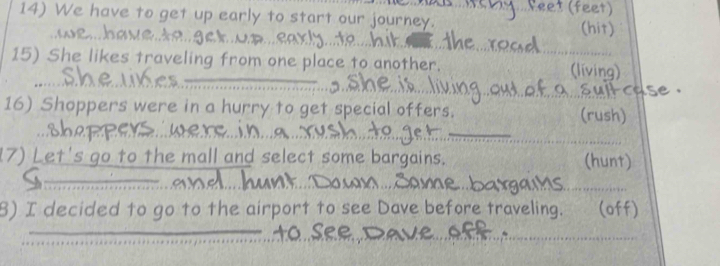 itchy feet (feet)
14) We have to get up early to start our journey. (hit)
we have to get up early to hit the road
15) She likes traveling from one place to another. (living)
She likes , she is living out of a suitcase.
16) Shoppers were in a hurry to get special offers. (rush)
shoppers were in a rush to get
17) Let's go to the mall and select some bargains. (hunt)
and hunt Down some bargains
8) I decided to go to the airport to see Dave before traveling. (off)
to see Dave off.